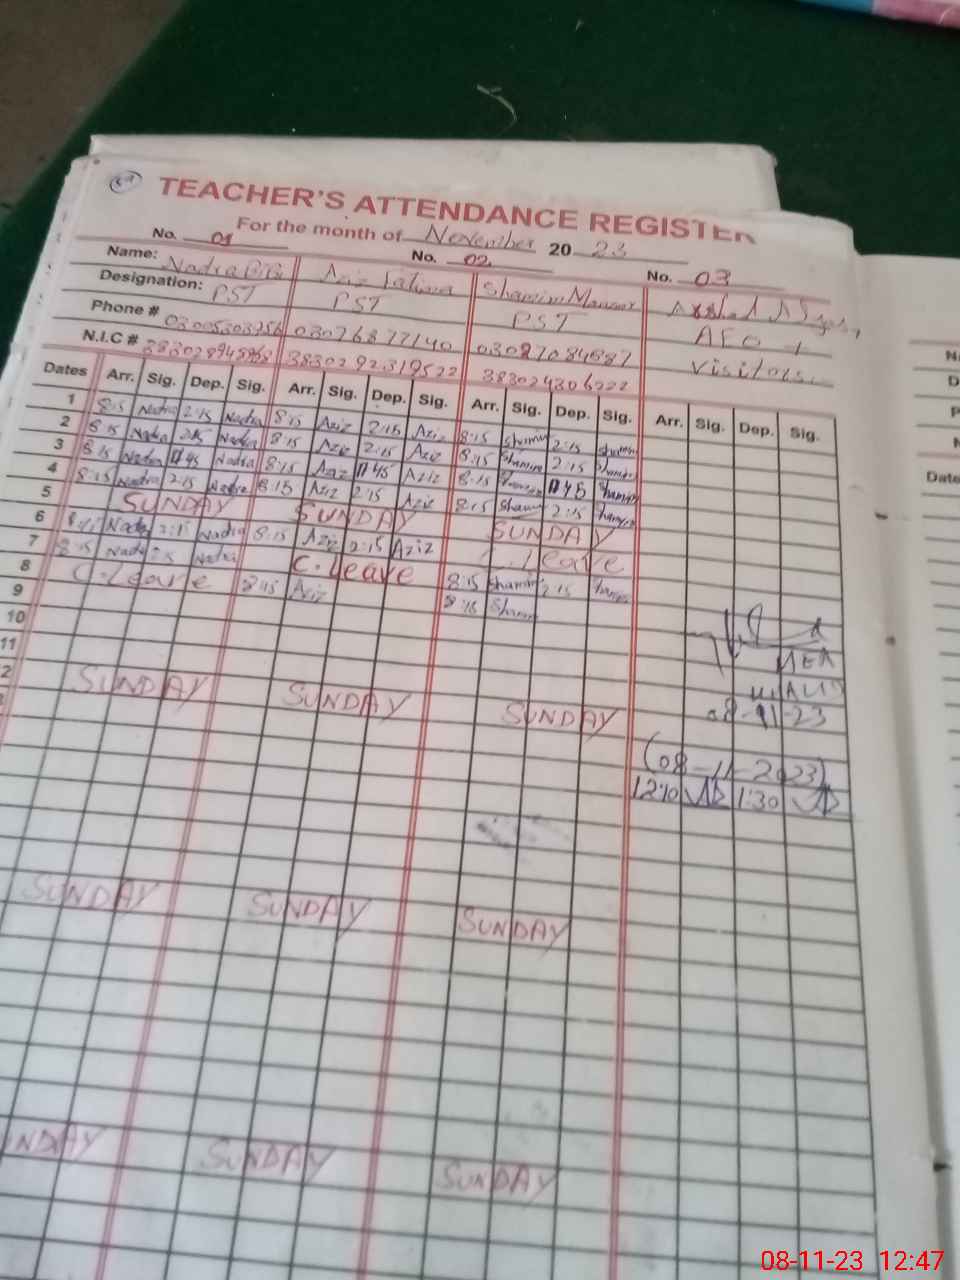 TEACHER'S ATTENDANCE REGISTER
For the month of November 20 23
No. 01 No. 02 No. 03
Name: Nadra Bibi Aziz Fatima Shamim Manzoor Arshad
Designation: PST PST PST AEO +
Phone # 03005303756 03076877140 03087084887 Visitors
N.I.C # 3830292319522 383024306222
Dates Arr. Sig. Dep. Sig. Arr. Sig. Dep. Sig. Arr. Sig. Dep. Sig. Arr. Sig. Dep. Sig.
1 8:15 Nadra 2:15 Nadra 8:15 Aziz 2:15 Aziz 8:15 Shamim 2:15 Shamim
2 8:15 Nadra 2:15 Nadra 8:15 Aziz 2:15 Aziz 8:15 Shamim 2:15 Shamim
3 8:15 Nadra 11:45 Nadra 8:15 Aziz 11:45 Aziz 8:15 Shamim 11:45 Shamim
4 8:15 Nadra 2:15 Nadra 8:15 Aziz 2:15 Aziz 8:15 Shamim 2:15 Shamim
5 SUNDAY SUNDAY SUNDAY
6 8:15 Nadra 2:15 Nadra 8:15 Aziz 2:15 Aziz C. Leave
7 8:15 Nadra 2:15 Nadra C. Leave 8:15 Shamim 2:15 Shamim
8 C. Leave 8:15 Aziz 8:15 Shamim
9
10
11
2 SUNDAY SUNDAY SUNDAY
MEA
08-11-23
(08-11-2023)
1:30
SUNDAY SUNDAY SUNDAY
UNDAY SUNDAY SUNDAY
Date
08-11-23 12:47